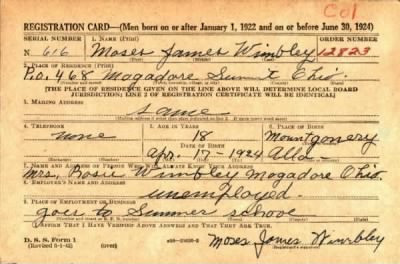 Col
REGISTRATION CARD—(Men born on or after January 1, 1922 and on or before June 30, 1924)
SERIAL NUMBER 1. NAME (Print) ORDER NUMBER
N 616 Moses James Wimbley 12823
2. PLACE OF RESIDENCE (Print)
P.O. 468 Mogadore Summit Ohio.
[THE PLACE OF RESIDENCE GIVEN ON THE LINE ABOVE WILL DETERMINE LOCAL BOARD
JURISDICTION; LINE 2 OF REGISTRATION CERTIFICATE WILL BE IDENTICAL]
3. MAILING ADDRESS
same
4. TELEPHONE 5. AGE IN YEARS 6. PLACE OF BIRTH
none 18 Mountgomery
DATE OF BIRTH
Apr. 17-1924 Alla
7. NAME AND ADDRESS OF PERSON WHO WILL ALWAYS KNOW YOUR ADDRESS
Mrs. Rosie Wimbley Mogadore Ohio.
8. EMPLOYER'S NAME AND ADDRESS
unemployed.
9. PLACE OF EMPLOYMENT OR BUSINESS
goes to Summer school
I AFFIRM THAT I HAVE VERIFIED ABOVE ANSWERS AND THAT THEY ARE TRUE.
D. S. S. Form 1
(Revised 6-1-42) (over) Moses James Wimbley